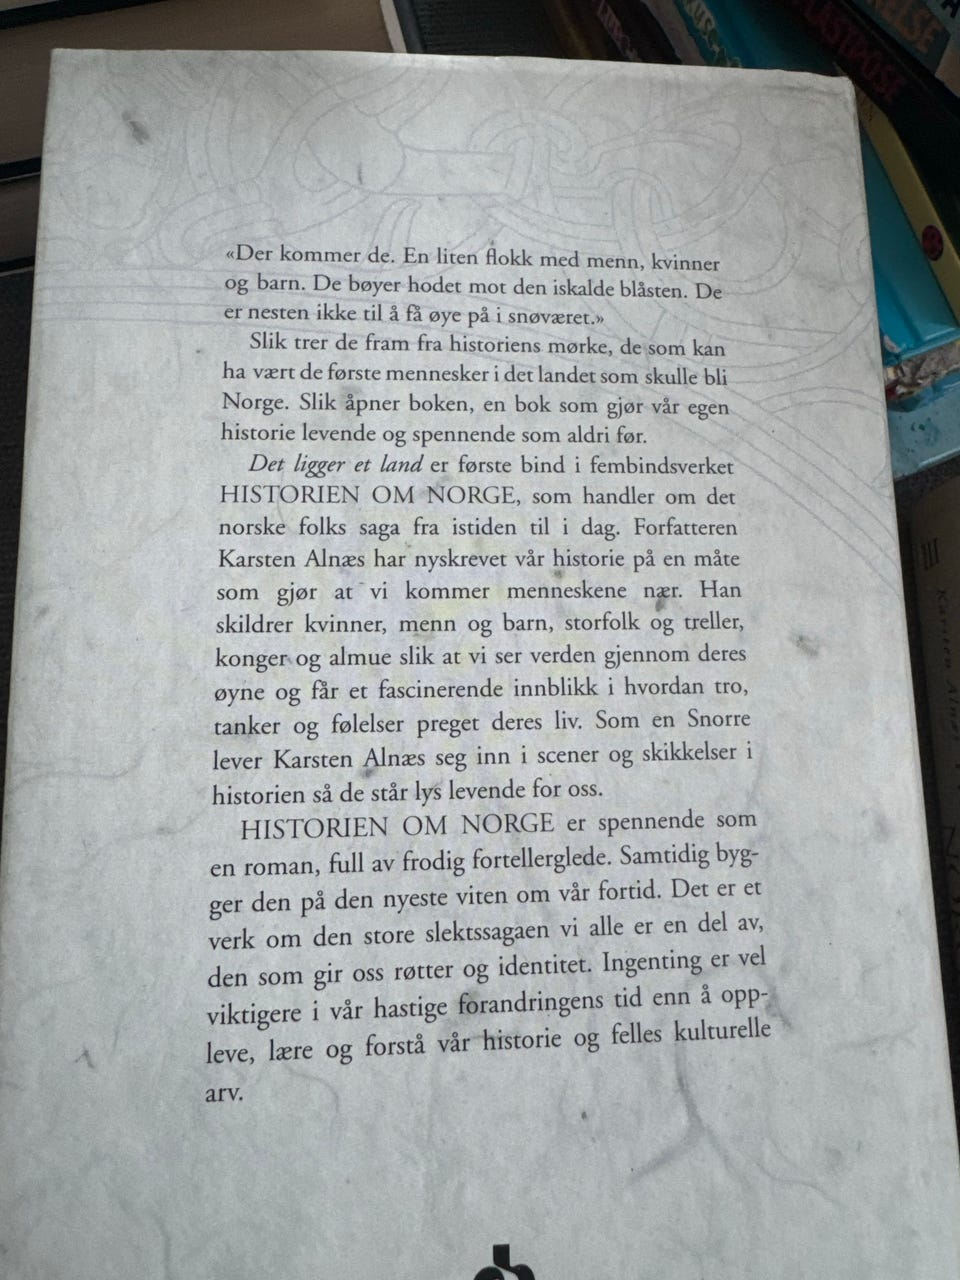 «Der kommer de. En liten flokk med menn, kvinner
og barn. De bøyer hodet mot den iskalde blåsten. De
er nesten ikke til å få øye på i snøværet.»
Slik trer de fram fra historiens mørke, de som kan
ha vært de første mennesker i det landet som skulle bli
Norge. Slik åpner boken, en bok som gjør vår egen
historie levende og spennende som aldri før.
Det ligger et land er første bind i fembindsverket
HISTORIEN OM NORGE, som handler om det
norske folks saga fra istiden til i dag. Forfatteren
Karsten Alnæs har nyskrevet vår historie på en måte
som gjør at vi kommer menneskene nær. Han
skildrer kvinner, menn og barn, storfolk og treller,
konger og almue slik at vi ser verden gjennom deres
øyne og får et fascinerende innblikk i hvordan tro,
tanker og følelser preget deres liv. Som en Snorre
lever Karsten Alnæs seg inn i scener og skikkelser i
historien så de står lys levende for oss.
HISTORIEN OM NORGE er spennende som
en roman, full av frodig fortellerglede. Samtidig byg-
ger den på den nyeste viten om vår fortid. Det er et
verk om den store slektssagaen vi alle er en del av,
den som gir oss røtter og identitet. Ingenting er vel
viktigere i vår hastige forandringens tid enn å opp-
leve, lære og forstå vår historie og felles kulturelle
arv.
III
Karsten Alnæs